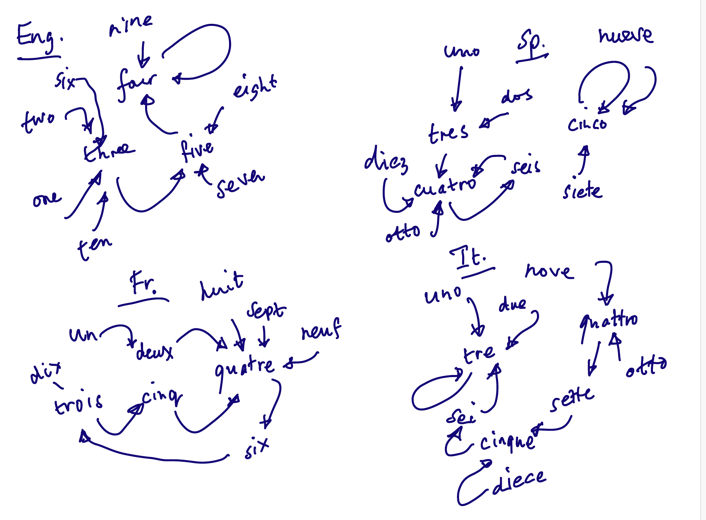 Eng.
nine
six
four
eight
two
three
five
seven
one
ten
Sp.
uno
nueve
dos
tres
cinco
diez
seis
cuatro
siete
otto
Fr.
huit
sept
un
deux
neuf
dix
quatre
trois
cinq
six
It.
nove
uno
due
quattro
tre
otto
sette
sei
cinque
diece